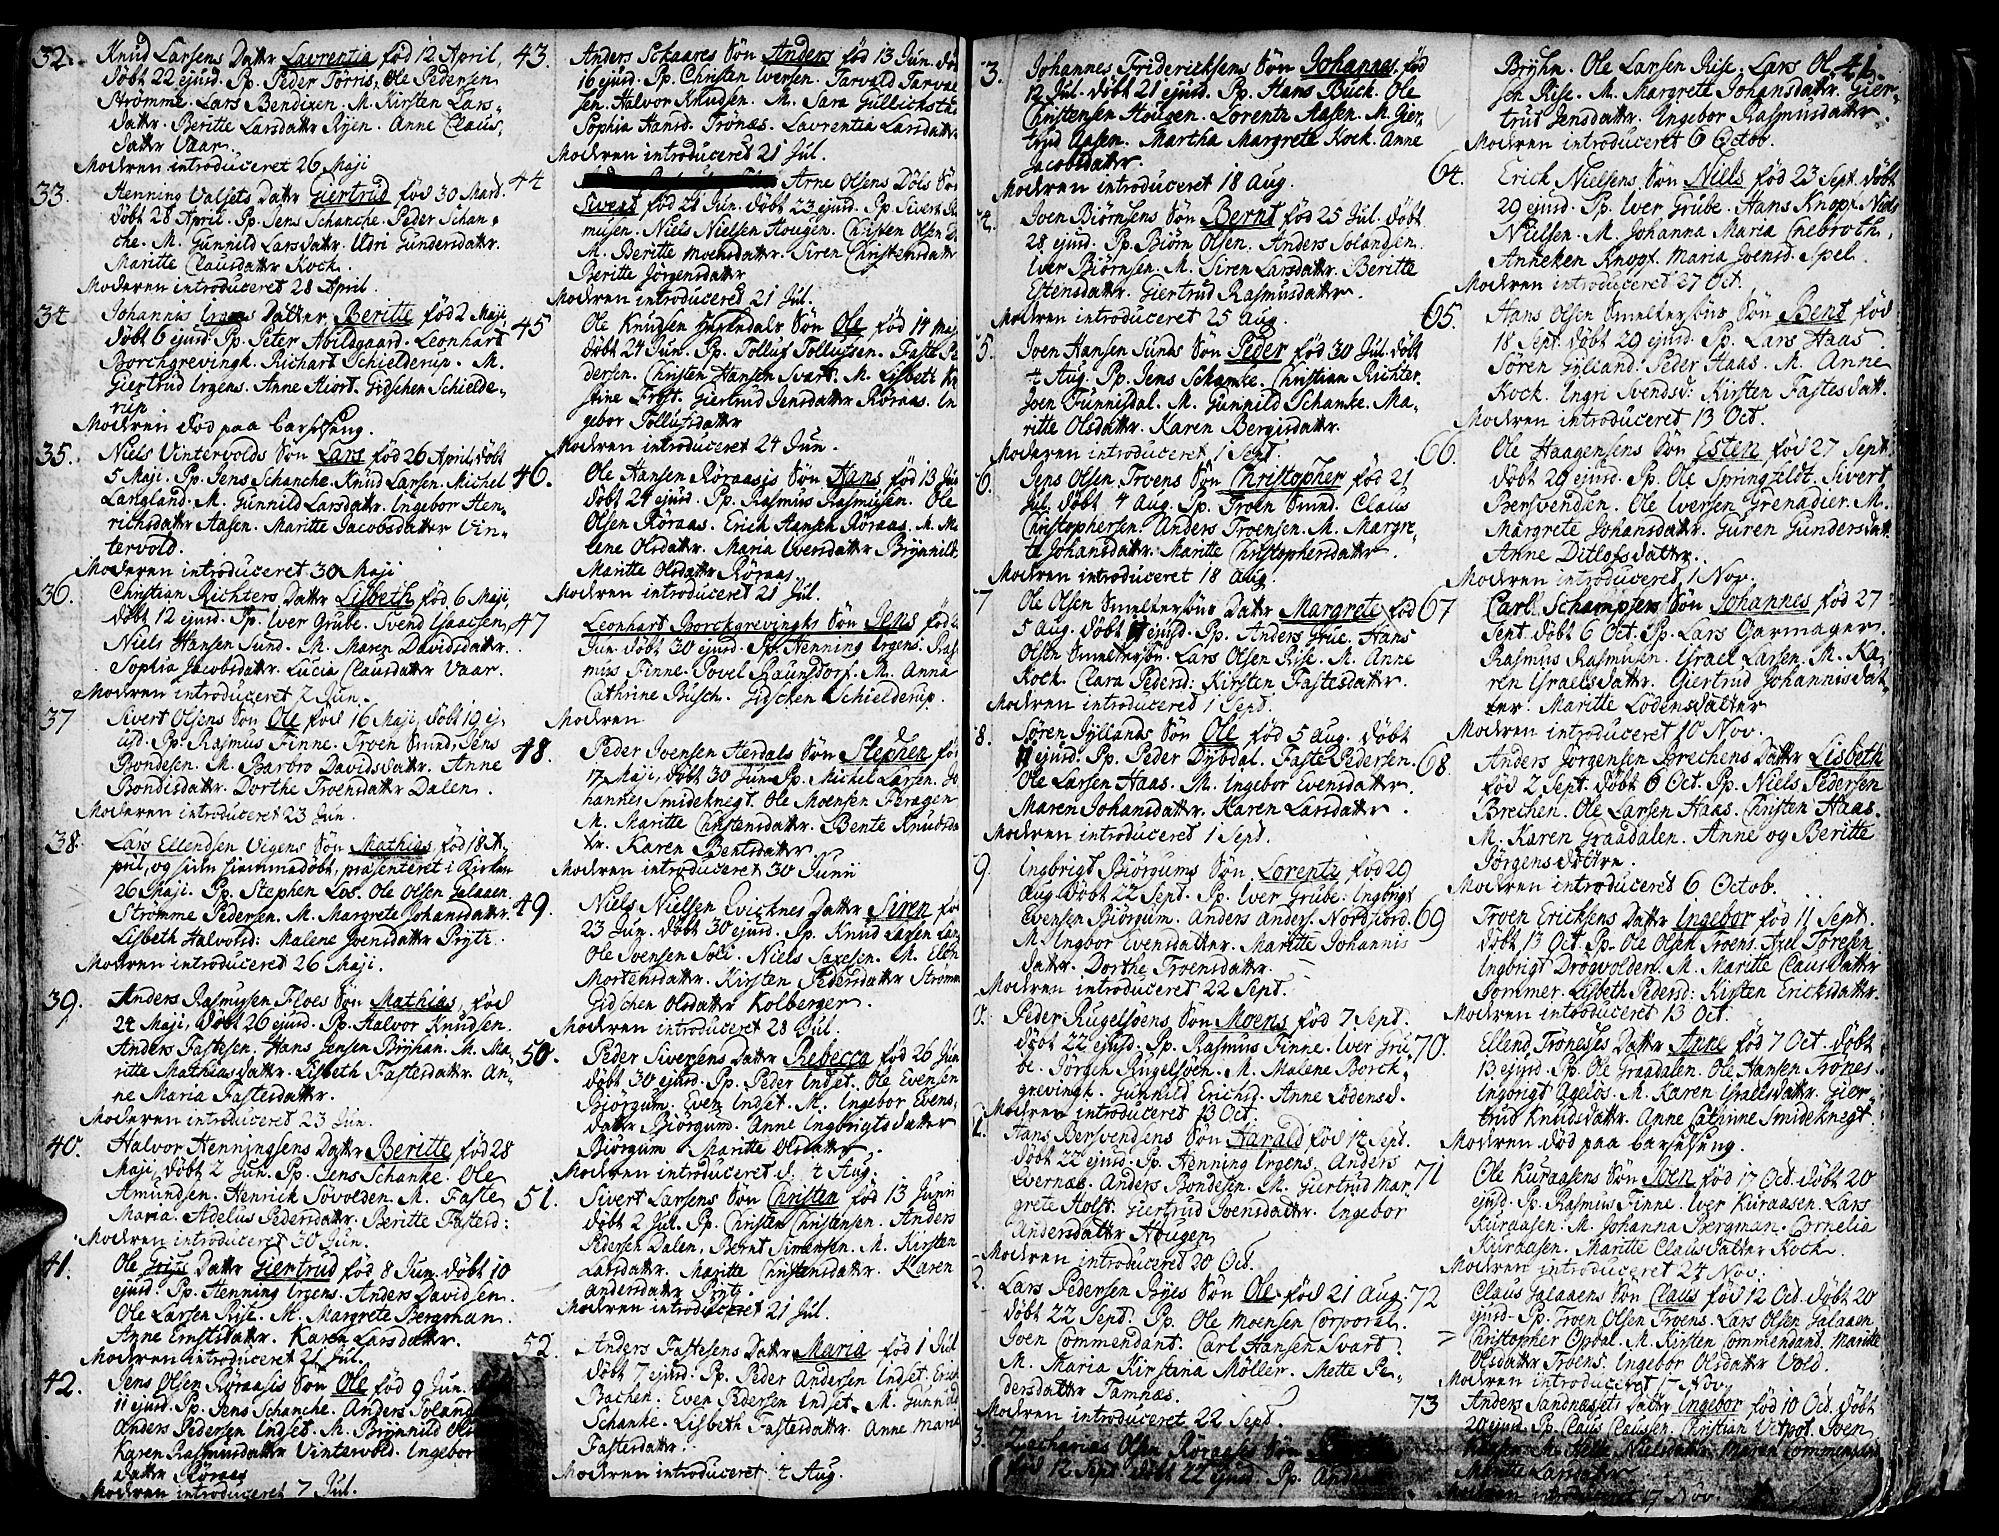 32. Knud Larsens Datter Lavrentia fød 12 April,
døbt 22 ejusd. Pp. Peder Tørris, Ole Pedersen
Strømme. Lars Bendixen. M. Kirsten Lars-
datter. Beritte Larsdattr Ryen. Anne Claus,
dattr Vaar.
Moderen introduceret 26 Maji
33. Henning Valsets Dattr Giertrud fød 30 Mart.
døbt 28 April. Pp. Jens Schanche. Peder Schan-
che. M. Gunnild Larsdattr. Eldri Gundersdattr.
Maritte Clausdattr Kock.
Moderen introduceret 28 April.
34 Johannis Irgens Datter Beritte fød 2 Maji
døbt 6 ejusd. Pp. Peter Abildgaard. Leonhart
Borchgrevingk. Richart Schielderup. M.
Giertrud Irgens. Anne Hiort. Gidschen Schielde-
rup
Moderen død paa barselsæng.
35. Niels Vintervolds Søn Lars fød 26 April, døbt
5 Maji. Pp. Jens Schanche. Knud Larsen. Michel
Langland. M. Gunnild Larsdattr. Ingebor Hen-
richsdattr Aasen. Maritte Jacobsdatter Vin-
tervold.
Moderen introduceret 30 Maji
36. Christian Richters Dattr Lisbeth fød 6 Maji,
døbt 12 ejusd. Pp. Iver Grube. Svend Isacsen,
Niels Hansen Sund. M. Maren Davidsdattr.
Sophia Jacobsdattr. Lucia Clausdattr Vaar.
Moderen introduceret 7 Jun.
37 Sivert Olsens Søn Ole fød 16 Maji, døbt 19 ej-
usd. Pp. Rasmus Finne. Troen Smed, Jens
Bondesen. M. Barbro Davidsdattr. Anne
Bondisdattr. Dorthe Troensdattr Dalen.
Moderen introduceret 23 Jun.
38. Lars Ellendsen Vigens Søn Mathias fød 18 A-
pril, og siin hiemmedøbt, præsenteret i Kirken
26 Maji. Pp. Stephen Los. Ole Olsen Galaaen
Strømme Pedersen. M. Margrete Johansdattr.
Lisbeth Halvorsd: Malene Joensdattr Prytz.
Moderen introduceret 26 Maji.
39. Anders Rasmusen Floes Søn Mathias, fød
24 Maji, døbt 26 ejusd. Pp. Halvor Knudsen.
Anders Fastesen. Hans Jensen Bryhan. M. Ma-
ritte Mathiasdattr. Lisbeth Fastesdattr. An-
ne Maria Fastesdattr.
Moderen introduceret 23 Jun.
40. Halvor Henningsens Dattr Beritte fød 28
Maji, døbt 2 Jun. Pp. Jens Schanke. Ole
Amundsen. Henrick Søvolden. M. Faste
Maria. Adelus Pedersdattr. Beritte Fastesd:
Moderen introduceret 30 Jun.
41. Ole Dattr Giertrud fød 8 Jun. døbt 10
ejusd. Pp. Henning Irgens. Anders Davidsen.
Ole Larsen Rise. M. Margrete Bergman.
Anne Ernstsdattr. Karen Larsdattr.
Moderen introduceret 21 Jul.
42. Jens Olsen Røraasis Søn Ole fød 9 Jun.
11 ejusd. Pp. Jens Schanche. Anders Soland
Anders Pedersen Indset. M. Brynnild Ols
Karen Rasmusdattr Vintervold. Ingebor
dattr Røraas
Moderen introduceret 7 Jul.
43. Anders Sckaares Søn Anders fød 13 Jun. dø
16 ejusd. Pp. Christen Iversen. Tarvald Tarval
sen. Halvor Knudsen. M. Sara Gullichstd
Sophia Hansd. Trønæs. Lavrentia Larsdattr
Moderen introduceret 21 Jul.
44 Arne Olsens Døls Søn
Sivert fød 21 Jun. døbt 23 ejusd. Pp. Sivert
musen. Niels Nielsen Hougen. Christen Olsen
M. Beritte Moensdattr. Siren Christensdattr
Beritte Jørgensdattr
Moderen introduceret 21 Jul.
45 Ole Knudsen Søn Ole fød 14 Maj
døbt 24 Jun. Pp. Tolluf Tollufsen. Faste Pe
dersen. Christen Hansen Svart. M. Lisbeth
Stine Frøst. Giertrud Jensdattr Røraas. In
gebor Tollufsdattr
Moderen introduceret 24 Jun.
46. Ole Hansen Røraasis Søn Hans fød 13 Jun
døbt 24 ejusd. Pp. Rasmus Rasmusen. Ole
Olsen Røraas. Erick Hansen Røraas. M. Ma
lene Olsdattr. Maria Iversdattr Brynnild
Maritte Olsdattr Røraas.
Moderen introduceret 21 Jul.
47 Leonhart Borckgrevingks Søn Jens fød
Jun. døbt 30 ejusd. Pp. Henning Irgens. Ras
mus Finne. Povel Raunsdorf. M. Anna
Cathrine Busch. Gidscken Schielderup.
Moderen
48. Peder Joensen Herdals Søn Stephen fød
17 Maji, døbt 30 Jun. Pp. Michel Larsen. Jo
hannes Smideknegt. Ole Moensen Sbragen
M. Maritte Christensdattr. Bente Knudsda
tr. Karen Bentsdattr
Moderen introduceret 30 Junii
49. Niels Nielsen Qvicknes Dattr Siren fø
23 Jun. døbt 30 ejusd. Pp. Knud Larsen Lan
Ole Svensen Soli. Niels Saxesen. M. Elen
Mortensdattr. Kirsten Pedersdattr Strømm
Gidschen Olsdattr Kolberger.
Moderen introduceret 28 Jul.
50. Peder Siversens Dattr Rebecca fød 26 Jun
døbt 30 ejusd. Pp. Peder Indset. Ole Evensen
Biørgum. Even Indset. M. Ingebor Evens-
dattr Biørgum. Anne Ingbrigtsdatter
Biørgum. Maritte Olsdattr
Moderen introduceret d. 4 Aug.
51. Sivert Larsens Søn Christen fød 13 Junii
døbt 2 Jul. Pp. Christen Christensen. Anders
Pedersen Dalen, Bernt Simensen. M. Kirsten
Larsdattr. Maritte Christensdattr. Karen
Andersdattr Prytz.
Moderen introduceret 21 Jul.
52. Anders Fastesens Dattr Maria fød 1 Jul
døbt 7 ejusd. Pp. Peder Andersen Indset. Erick
Bachen. Even Pedersen Indset. M. Gunnild
Schanke. Lisbeth Fastesdattr. Anne Maria
Fastesdattr.
Moderen introduceret 4 Aug.
3. Johannes Fridericksens Søn Johannes. fød
12 Jul. døbt 21 ejusd. Pp. Hans Buck. Ole
Christensen Hougen. Lorentz Aasen. M. Gier-
trud Aasen. Martha Margrete Kock. Anne
Jacobsdattr
Moderen introduceret 18 Aug.
4. Joen Biørnsens Søn Bernt fød 25 Jul. døbt
28 ejusd. Pp. Biørn Olsen. Anders Solandsen.
Iver Biørnsen. M. Siren Larsdattr. Beritte
Estensdattr. Giertrud Rasmusdattr.
Moderen introduceret 25 Aug.
5. Joen Hansen Sunds Søn Peder fød 30 Jul. døbt
4 Aug. Pp. Jens Schamke. Christian Richter.
Joen Funnisdal. M. Gunnild Schamke. Ma-
ritte Olsdattr. Karen Bergisdattr.
Moderen introduceret 1 Sept.
6. Jens Olsen Troens Søn Christopher fød 21
Jul. døbt 4 Aug. Pp. Troen Smed. Claus
Christophersen. Anders Troensen. M. Margre-
te Johansdattr. Maritte Christophersdattr.
Moderen introduceret 18 Aug.
7 Ole Olsen Smelterbus Dattr Margrete fød
5 Aug. døbt 11 ejusd. Pp. Anders Grue. Hans
Olsen Smelterbu. Lars Olsen Rise. M. Anne
Kock. Clara Pedersd: Kirsten Fastesdattr.
Moderen introduceret 1 Sept.
8. Søren Jyllands Søn Ole fød 5 Aug. døbt
11 ejusd. Pp. Peder Dybdal. Faste Pedersen.
Ole Larsen Haas. M. Ingebor Evensdattr.
Maren Johansdattr. Karen Larsdattr.
Moderen introduceret 1 Sept.
9. Ingbrigt Biørgums Søn Lorentz fød 29
Aug. døbt 22 Sept. Pp. Iver Grube. Ingbrigt
Evensen Biørgum. Anders Anders. Nordfiord.
M. Ingbor Evensdattr. Maritte Johannis
dattr. Dorthe Troensdattr.
Moderen introduceret 22 Sept.
0. Peder Rugelsøens Søn Moens fød 7 Sept.
døbt 22 ejusd. Pp. Rasmus Finne. Iver Gru-
be. Jørgen Rugelsøen. M. Malene Borck-
grevingk. Gunnild Erichsd. Anne Lodensd.
Moderen introduceret 13 Oct.
1. Hans Bersvendsens Søn Harald fød 14 Sept.
døbt 22 ejusd. Pp. Henning Irgens. Anders
Evernæs. Anders Bondesen. M. Giertrud Mar-
grete Holst. Giertrud Svensdattr. Ingebor
Andersdattr Hougen
Moderen introduceret 20 Oct.
2. Lars Pedersen Byes Søn Ole fød 21 Aug.
døbt 22 Sept. Pp. Ole Moensen Corporal.
Joen Commendant. Carl Hansen Svart.
M. Maria Kirstina Møller. Mette Pe-
dersdattr Tamnæs.
Moderen introduceret 22 Sept.
3. Zacharias Olsen Røraases Søn
fød 12 Sept. døbt 22 ejusd. Pp. Anders
41.
Bryhn. Ole Larsen Rise. Lars Ol
sen Rise. M. Margrete Johansdattr. Gier-
trud Jensdattr. Ingebor Rasmusdattr
Moderen introduceret 6 Octob.
64. Erick Nielsens Søn Niels fød 23 Sept. døbt
29 ejusd. Pp. Iver Grube. Hans Knopf. Niels
Nielsen. M. Johanna Maria Cnebroth.
Anneken Knopf. Maria Joensd. Spel.
Moderen introduceret 27 Oct.
65. Hans Olsen Smelterbus Søn Bent fød
18 Sept. døbt 29 ejusd. Pp. Lars Haas.
Søren Gylland. Peder Haas. M. Anne
Kock. Ingri Svendsd: Kirsten Fastesdattr.
Moderen introduceret 13 Oct.
66. Ole Haagensens Søn Esten fød 27 Sept
døbt 29 ejusd. Pp. Ole Springfeldt. Sivert
Bersvendsen. Ole Iversen Grenadier. M.
Margrete Johansdattr. Guren Gundersdatt.
Anne Ditlofsdattr.
Moderen introduceret 1 Nov.
67 Carl Schampsens Søn Johannes fød 27
Sept. døbt 6 Oct. Pp. Lars Garmager.
Rasmus Rasmusen. Israel Larsen. M. Ka-
ren Israelsdattr. Giertrud Johannisdat-
ter. Maritte Lodensdatter
Moderen introduceret 10 Nov.
68. Anders Jørgensen Brechens Dattr Lisbeth
fød 2 Sept. døbt 6 Oct. Pp. Niels Pedersen
Brechen. Ole Larsen Haas. Christen Haas.
M. Karen Graadalen. Anne og Beritte
Jørgensdøtre.
Moderen introduceret 6 Octob.
69 Troen Ericksens Dattr Ingebor fød 11 Sept.
døbt 13 Oct. Pp. Ole Olsen Troens. Axel Toresen
Ingbrigt Drøgvolden. M. Maritte Clausdattr
Sommer. Lisbeth Pedersd: Kirsten Ericksdattr.
Moderen introduceret 13 Oct.
70. Ellend Trøneses Dattr Anne fød 7 Oct. døbt
13 ejusd. Pp. Ole Graadalen. Ole Hansen Trønes.
Ingbrigt Ageløs. M. Karen Israelsdattr. Gier-
trud Knudsdattr. Anne Catrine Smideknegt.
Moderen død paa barselsæng.
71 Ole Kuraasens Søn Joen fød 17 Oct. døbt 20
ejusd. Pp. Rasmus Finne. Iver Kuraasen. Lars
Kuraasen. M. Johanna Bergman. Cornelia
Kuraasen. Maritte Clausdatter Kock.
Moderen introduceret 24 Nov.
72 Claus Galaaens Søn Claus fød 12 Oct. døbt 20
ejusd. Pp. Troen Olsen Troens. Lars Olsen Galaaen
Christopher Opdal. M. Kirsten Commendant. Maritte
Olsdattr Troens. Ingebor Olsdattr Vold.
Moderen introduceret 17 Nov.
73 Anders Sandnesets Dattr Ingebor fød 10 Oct. døbt
20 ejusd. Pp. Claus Clausen. Christian Joen
M. Nielsdattr. Maren Commendant
Maritte Larsdattr
Moderen introduceret 17 Nov.